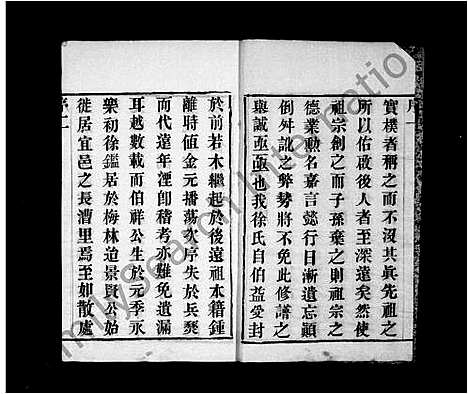 序一
實樸者稱之而不沒其眞先祖之
所以佑啟後人者至深遠矣然使
祖宗創之而子孫棄之則祖宗之
德業勳名嘉言懿行日漸遺忘顚
倒舛訛之弊勢將不免此修譜之
舉誠亟亟也我徐氏自伯益愛封
於前若木繼起於後遠祖木籍鍾
離時値金元播蕩次序失於兵燹
而代遠年湮卽稽考亦難免遺漏
耳越數載而伯祥公生於元季永
樂初徐鑑居於梅林迨景賢公始
徙居宜邑之長漕里焉至如散處
序二